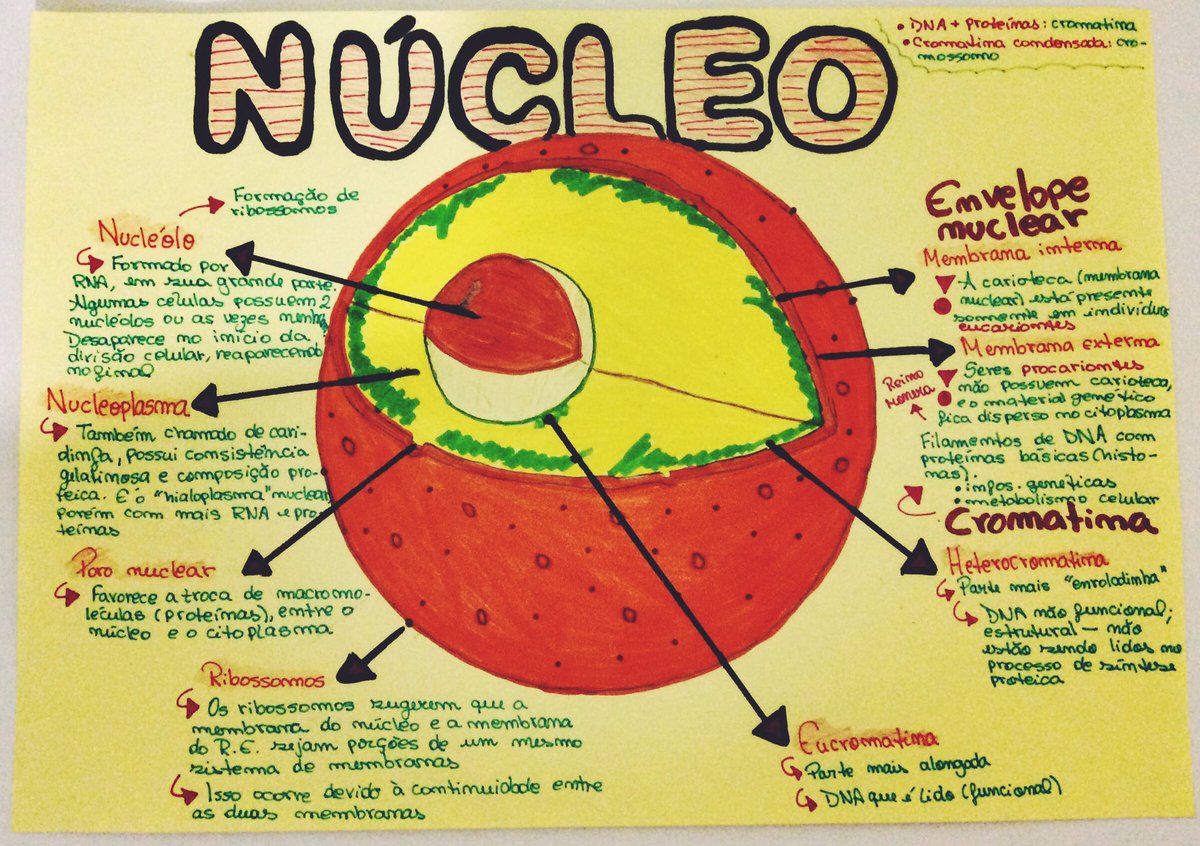 NÚCLEO
• DNA + proteínas: cromatina
• Cromatina condensada: cro-
mossomo
Formação de
ribossomos
Nucléolo
Formado por
RNA, em sua grande parte.
Algumas células possuem 2
nucléolos ou as vezes nenhum
Desaparece no início da
divisão celular, reaparecendo
no final
Nucleoplasma
Também chamado de cari-
olinfa, possui consistência
gelatinosa e composição pro-
teica. E é o "hialoplasma" nuclear
porém com mais RNA e pro-
teínas
Poro nuclear
Favorece a troca de macromo-
léculas (proteínas), entre o
núcleo e o citoplasma
Ribossomos
Os ribossomos sugerem que a
membrana do núcleo e a membrana
do R.E. sejam porções de um mesmo
sistema de membranas
Isso ocorre devido à continuidade entre
as duas membranas
Envelope
nuclear
Membrana interna
A carioteca (membrana
nuclear) está presente
somente em indivíduos
eucariontes
Membrana externa
Seres procariontes
não possuem carioteca,
e o material genético
fica disperso no citoplasma
Reino
Monera
Filamentos de DNA com
proteínas básicas (histo-
nas).
• infos. genéticas
• metabolismo celular
Cromatina
Heterocromatina
Parte mais "enroladinha"
DNA não funcional;
estrutural — não
estão sendo lidos no
processo de síntese
proteica
Eucromatina
Parte mais alongada
DNA que é lido (funcional)